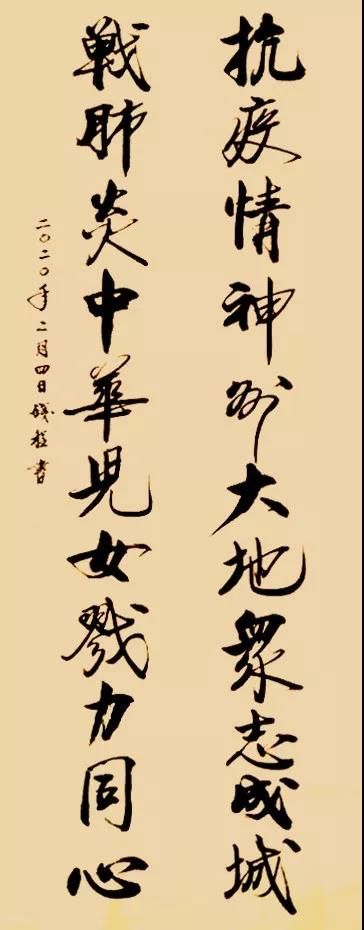 抗疫情神州大地衆志成城
戰肺炎中華兒女戮力同心
二〇二〇年二月四日錢書